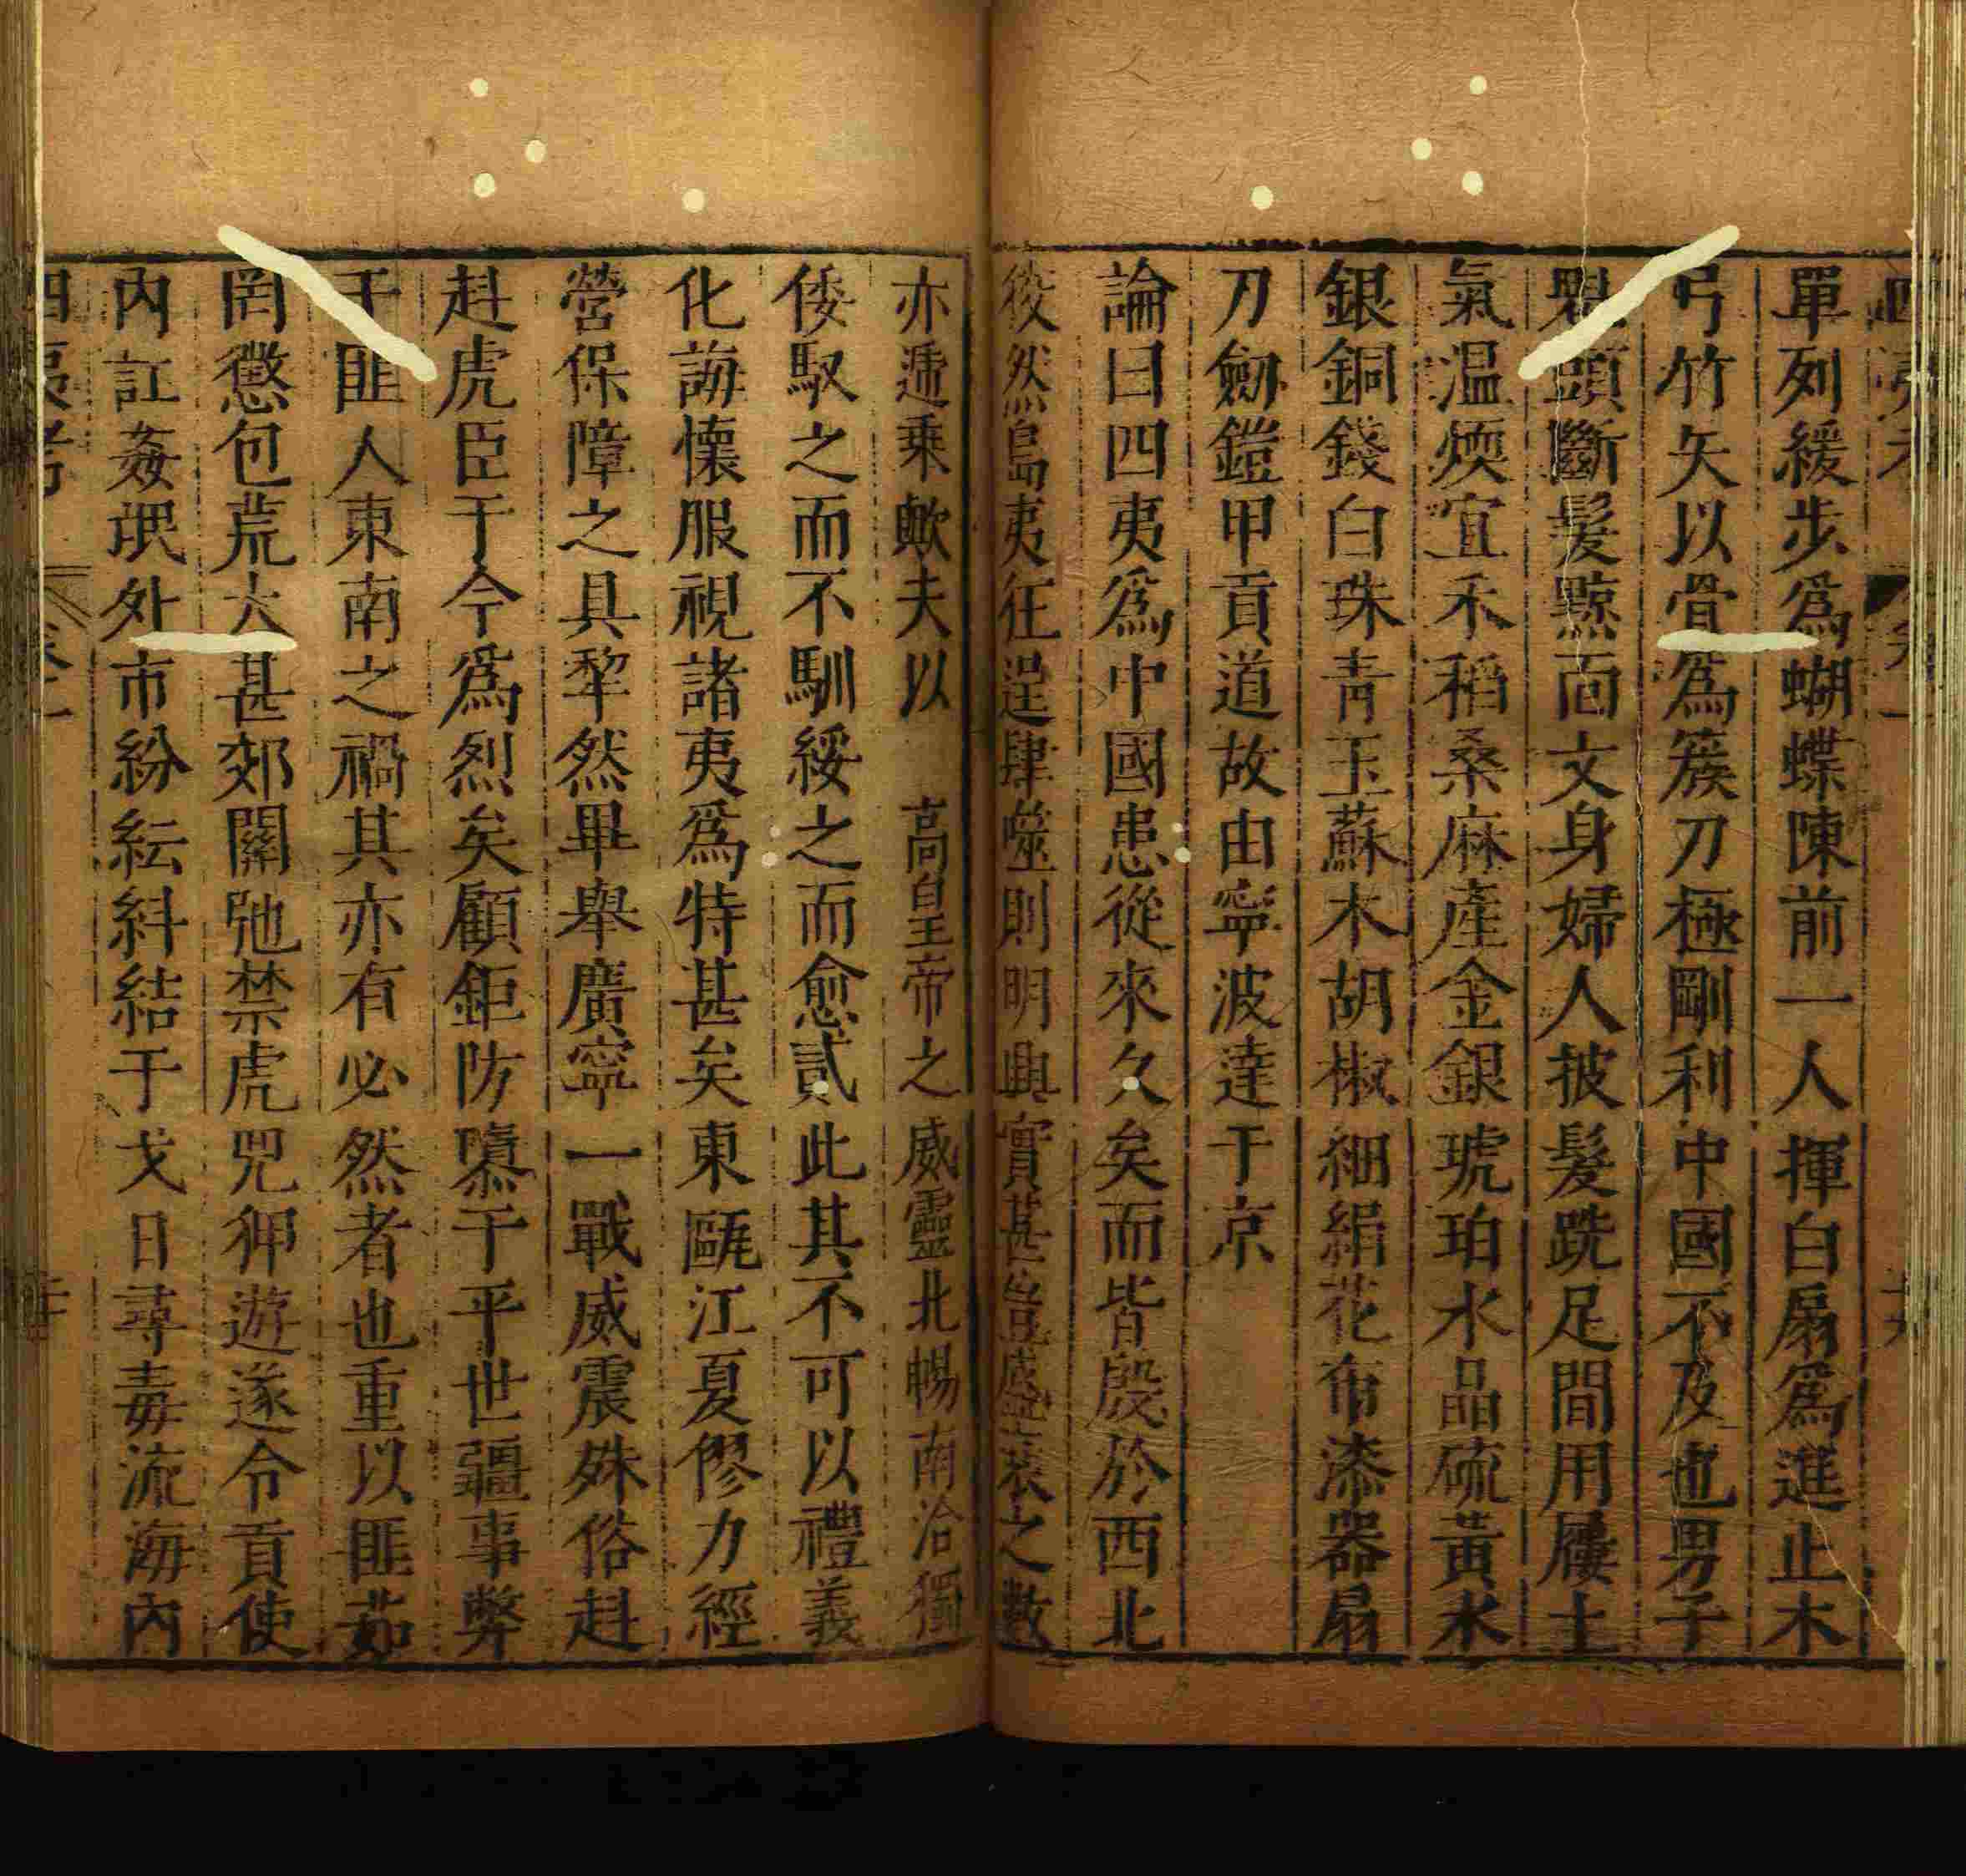 單列緩步爲蝴蝶陳前一人揮白扇爲進止木
弓竹矢以骨爲簇刀極剛利中國不及也男子
頭斷髮黥面文身婦人披髮跣足間用屨土
氣溫煗宜禾稻桑麻產金銀琥珀水晶硫黃水
銀銅錢白珠青玉蘇木胡椒細絹花布漆器扇
刀劒鎧甲貢道故由寧波達于京
論曰四夷爲中國患從來久矣而皆殷於西北
役然島夷狂逞肆噬則明興實甚豈盛衰之數
亦遞乗歟夫以 高皇帝之威靈北暢南洽獨
倭馭之而不馴綏之而愈貳此其不可以禮義
化誨懷服視諸夷爲特甚矣東甌江夏僇力經
營保障之具犂然畢舉廣寧一戰威震殊俗赳
赳虎臣于今爲烈矣顧鉅防隳于平世疆事弊
于匪人東南之禍其亦有必然者也重以匪茹
罔懲包荒大甚郊關弛禁虎兕狎遊遂令貢使
內訌姦氓外市紛紜糾結于戈日尋毒流海內
四夷考